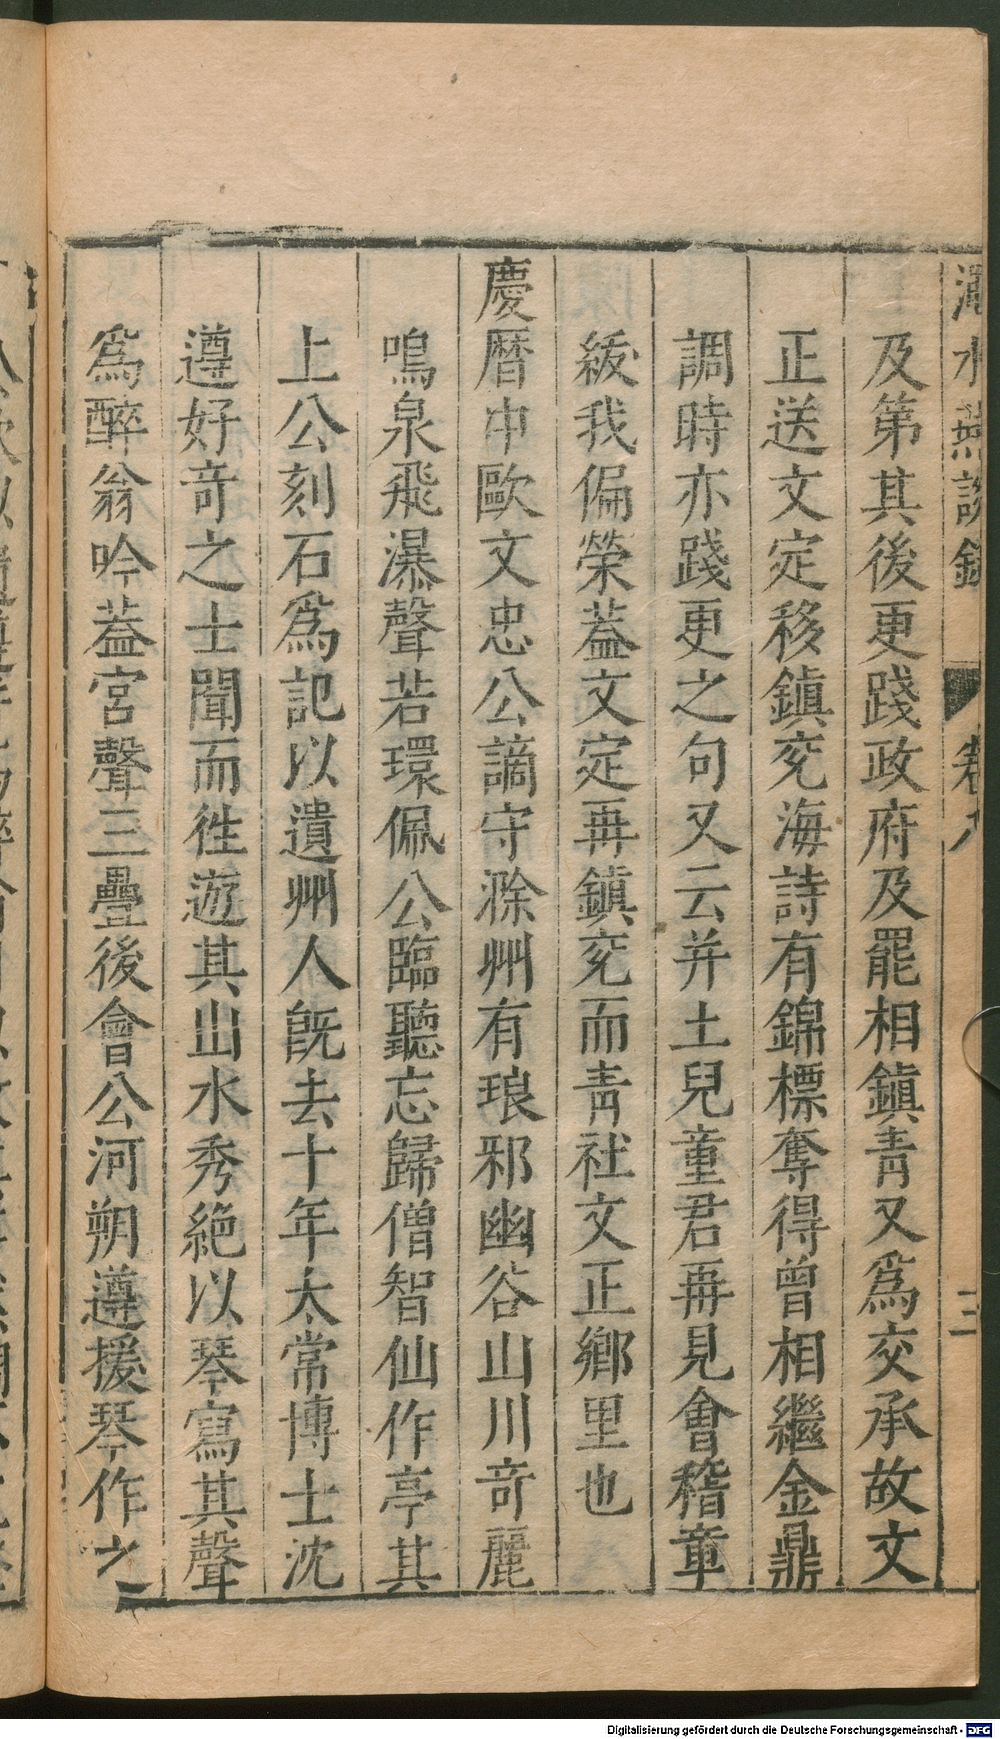 水燕談錄 卷八 三
及第其後更踐政府及罷相鎮青又爲交承故文
正送文定移鎮兖海詩有錦標奪得曾相繼金鼎
調時亦踐更之句又云并土兒童君再見會稽章
紱我偏榮葢文定再鎮兖而青社文正鄉里也
慶曆中歐文忠公謫守滁州有琅邪幽谷山川竒麗
鳴泉飛瀑聲若環佩公臨聽忘歸僧智仙作亭其
上公刻石爲記以遺州人旣去十年太常博士沈
遵好竒之士聞而徃遊其山水秀絶以琴寫其聲
爲醉翁吟葢宮聲三疊後會公河朔遵援琴作之
Digitalisierung gefördert durch die Deutsche Forschungsgemeinschaft - DFG